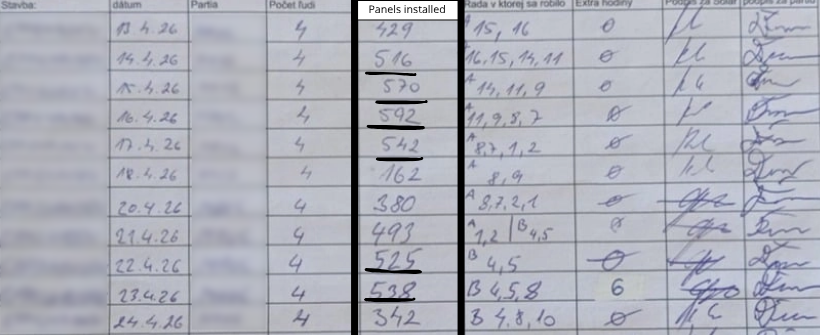 Stavba: dátum Partia Počet ľudí Panels installed Rada v ktorej sa robilo Extra hodiny
13.4.26 4 429 A 15, 16 0
14.4.26 4 516 A 16,15,14,11 0
15.4.26 4 570 A 14,11,9 0
16.4.26 4 592 A 11,9,8,7 0
17.4.26 4 542 A 8,7,1,2 0
18.4.26 4 162 A 8,9 0
20.4.26 4 380 A 8,7,2,1 0
21.4.26 4 493 A 1,2 | B 4,5 0
22.4.26 4 525 B 4,5 0
23.4.26 4 538 B 4,5,8 6
24.4.26 4 342 B 4,8,10 0